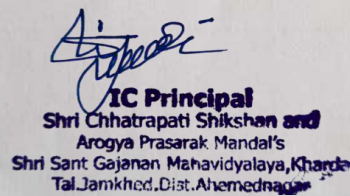 IC Principal
Shri Chhatrapati Shikshan and
Arogya Prasarak Mandal's
Shri Sant Gajanan Mahavidyalaya,Kharda
Tal.Jamkhed.Dist.Ahemednagar